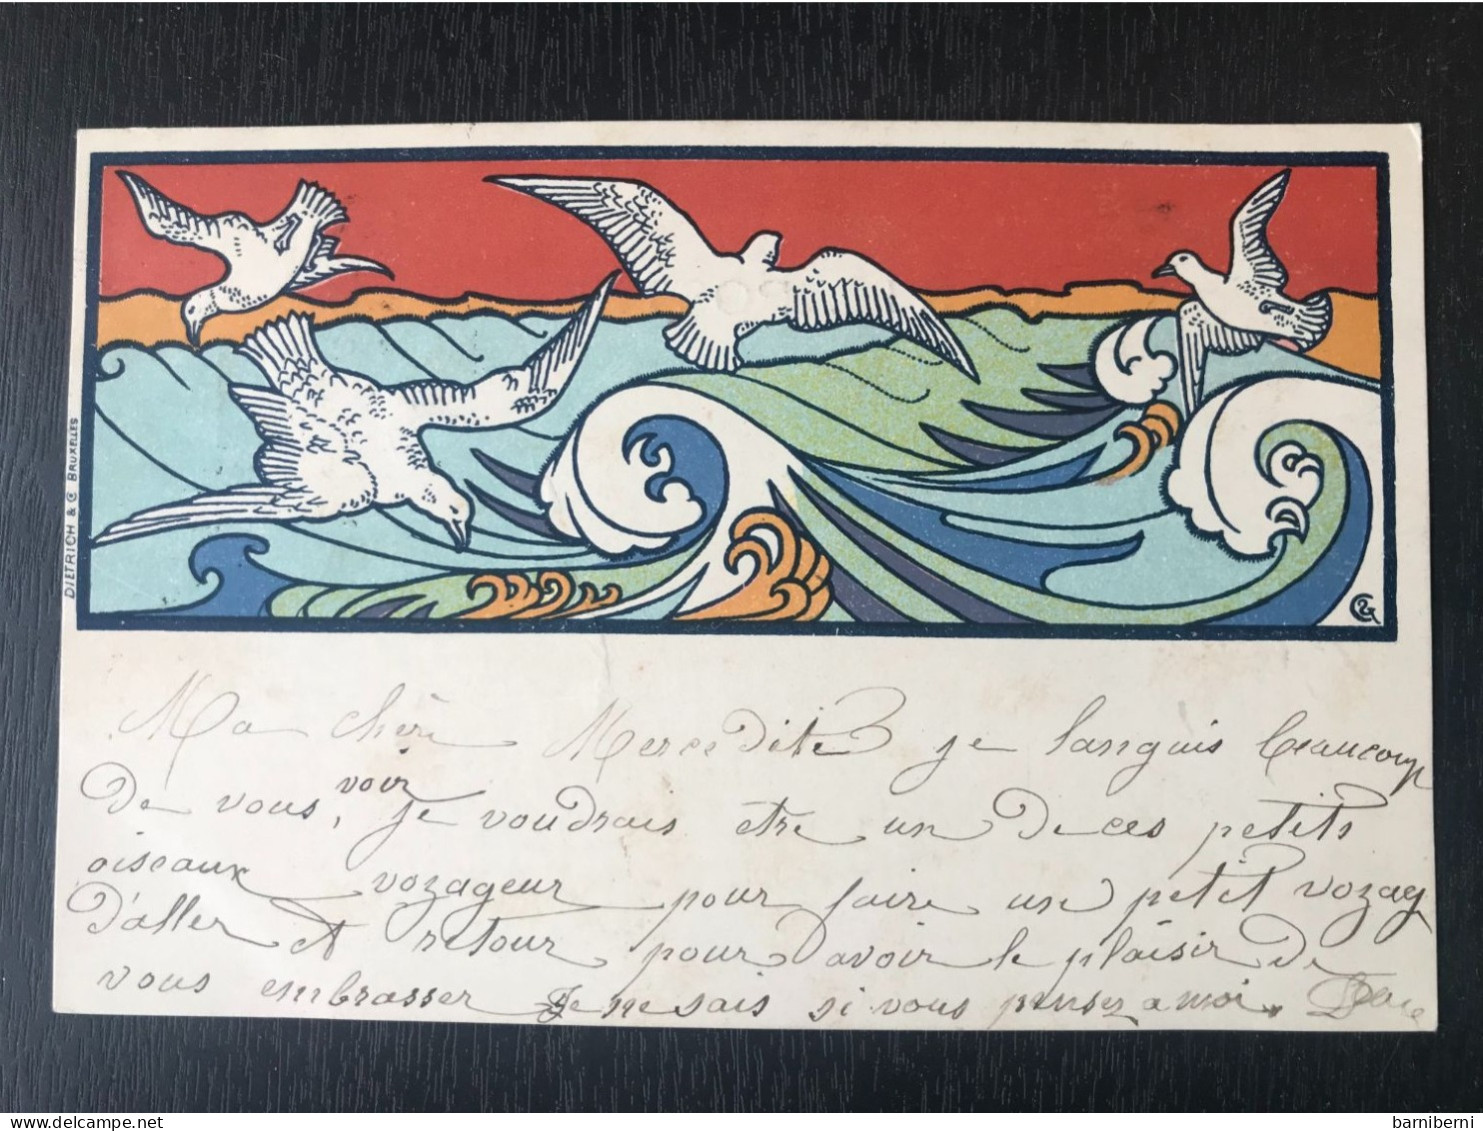 DIETRICH & Cº BRUXELLES
Ma chère Mercedite je languis beaucoup
voir
De vous, je voudrais etre un De ces petits
oiseaux vozageur pour faire un petit vozag
D'aller et retour pour avoir le plaisir De
vous embrasser Je ne sais si vous pensez a moi.
barniberni